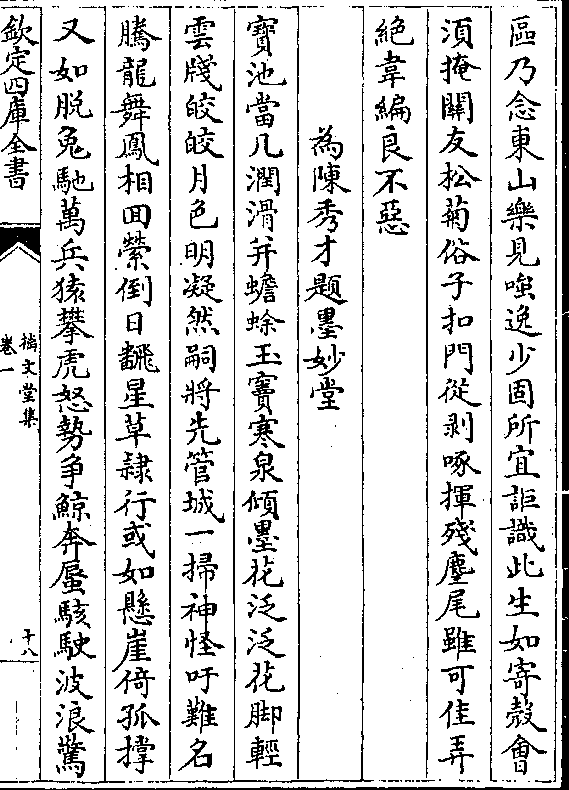 區乃念東山樂見嗤逸少固所宜詎識此生如寄殼會
須掩關友松菊俗子扣門從剥啄揮殘麈尾雖可佳弄
絶韋編良不惡
為陳秀才題墨妙堂
寳池當几潤滑并蟾蜍玉竇寒泉傾墨花泛泛花脚輕
雲牋皎皎月色明凝然嗣將先管城一掃神怪吁難名
騰龍舞鳳相回縈倒日飜星草隷行或如懸崖倚孤撑
又如脱兔馳萬兵猿攀虎怒勢爭鯨奔蜃駭駛波浪驚
欽定四庫全書
摛文堂集
卷一
十八